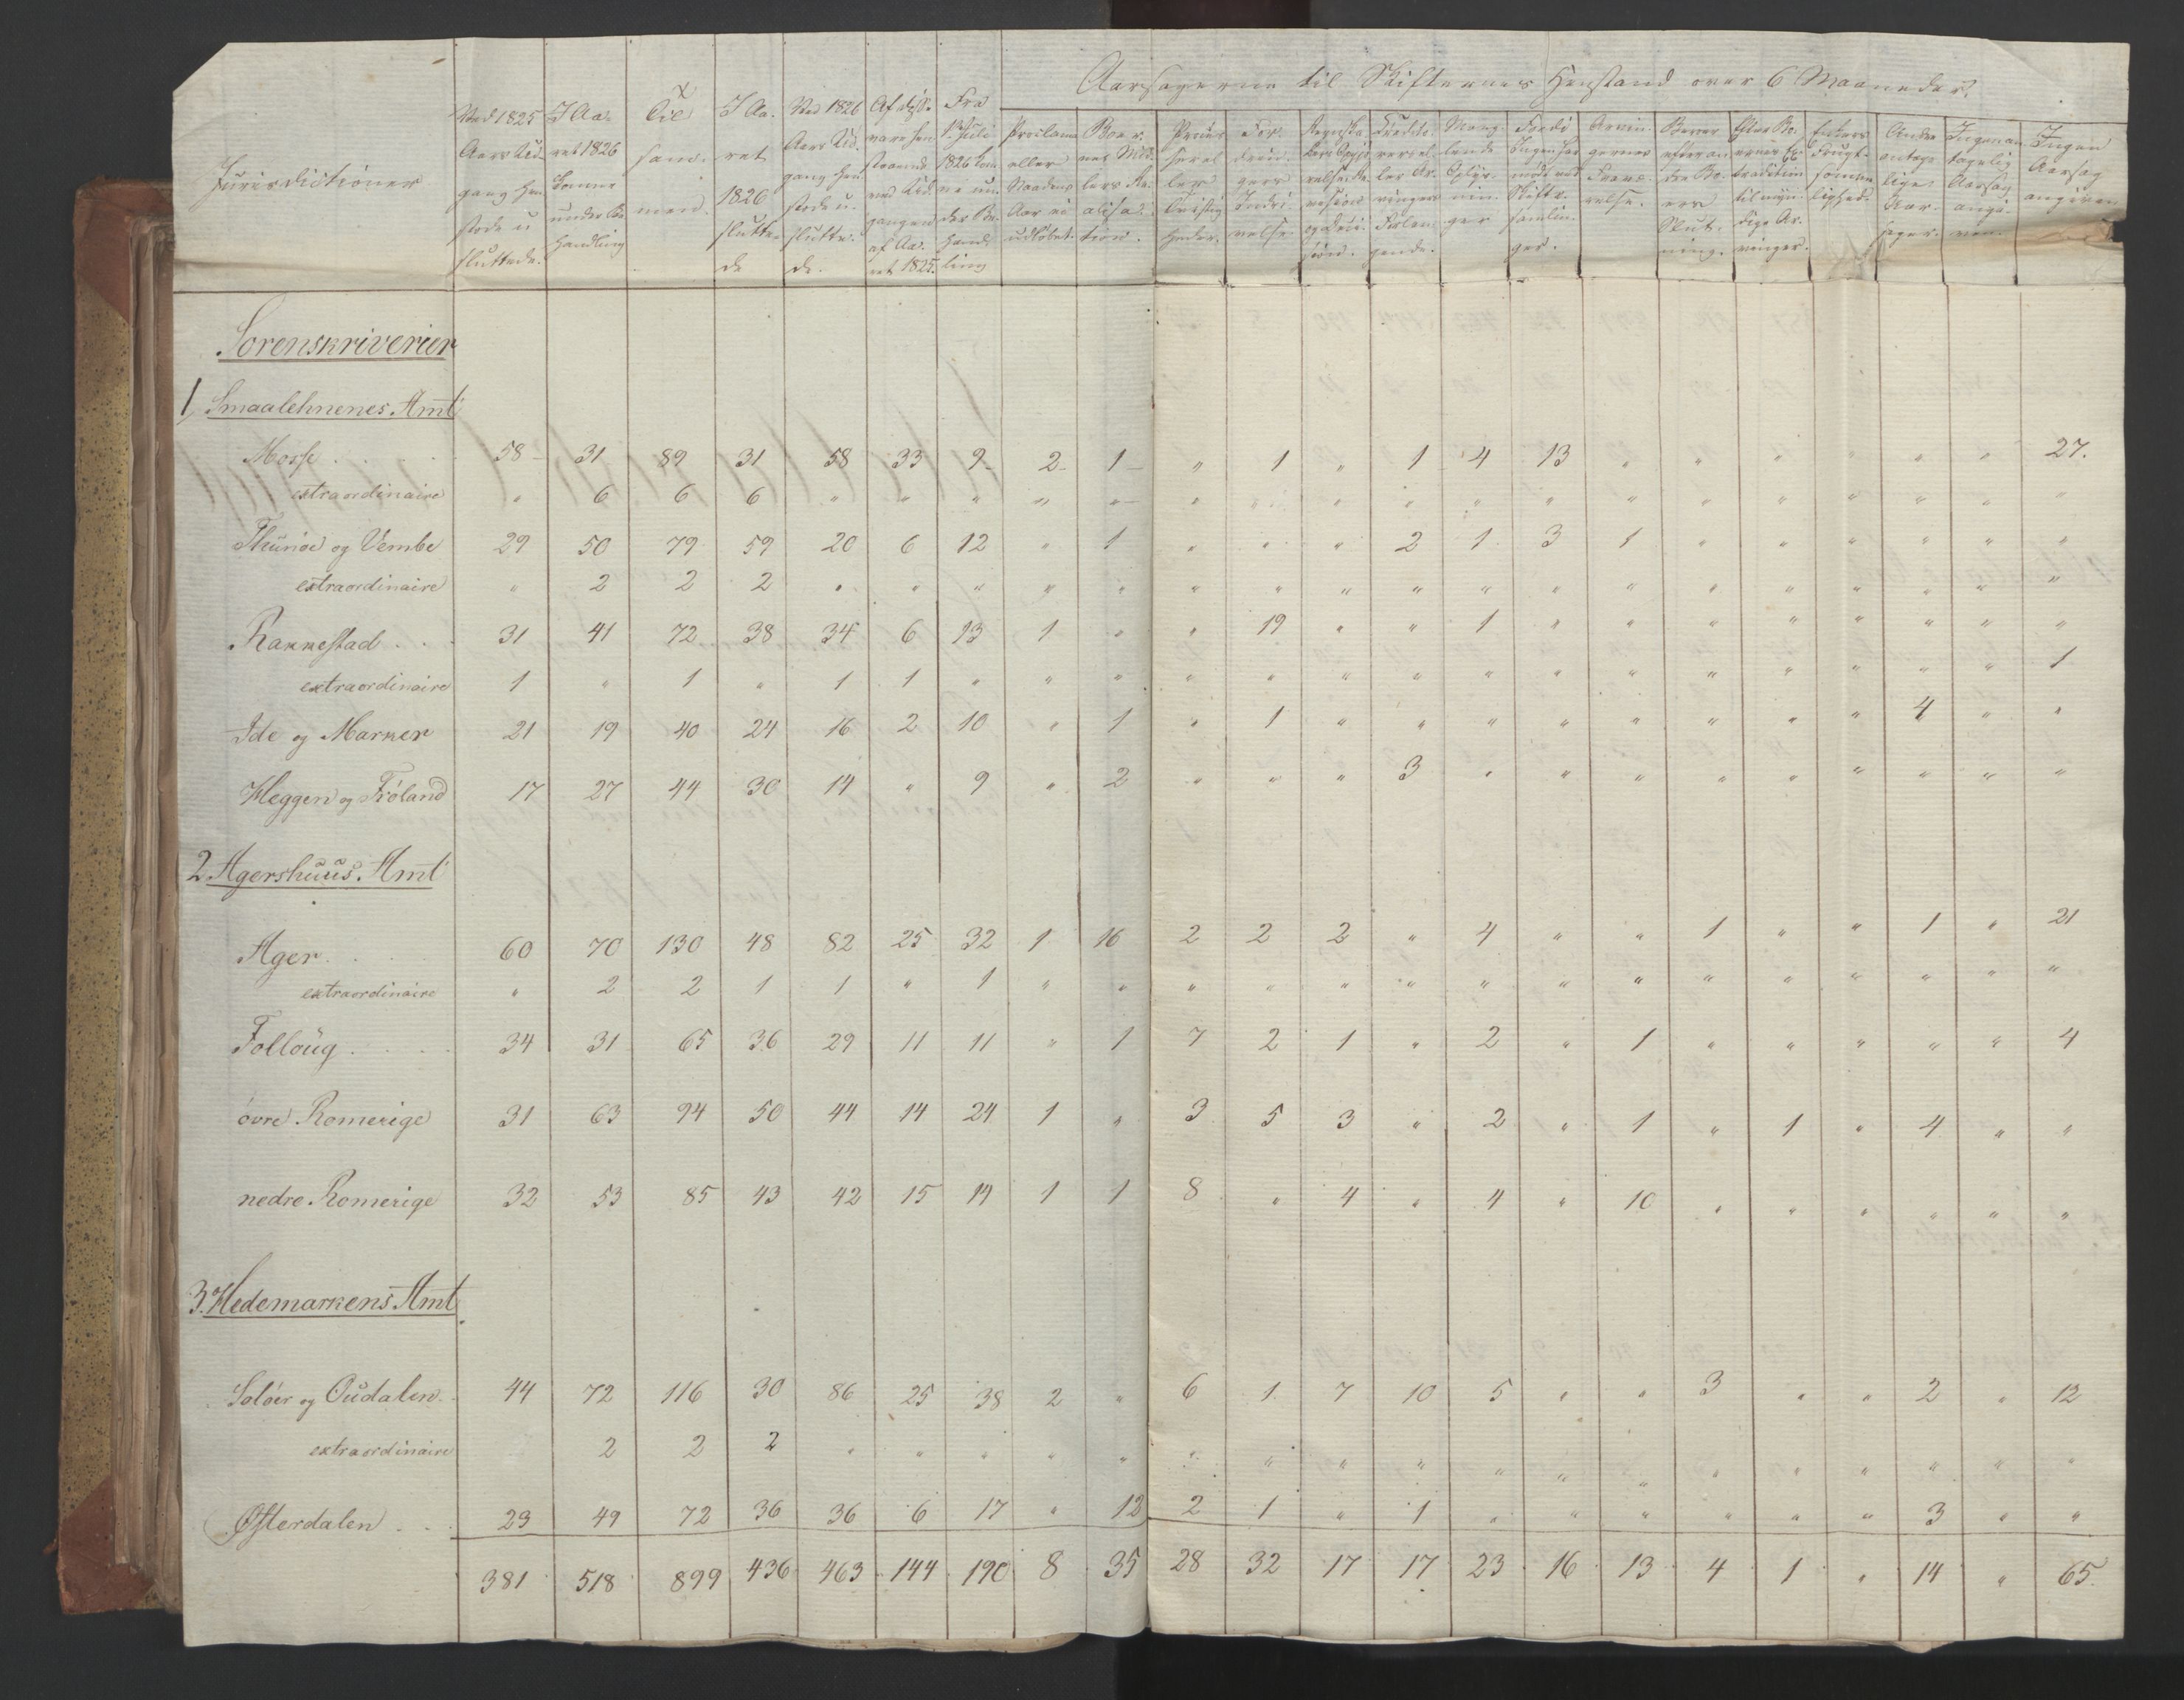 Aarsagerne til Skifternes Henstand over 6 Maaneder.
Jurisdictioner
Ved 1825 Aars Udgang henstode usluttede.
I Aaret 1826 komne under Behandling
Tilsammen.
I Aaret 1826 sluttede
Ved 1826 Aars Udgang henstode usluttede.
Af disse vare henstaaende ved Udgangen af Aaret 1825.
Fra 1ste Juli 1826 komne under Behandling
Proclama eller Naadens Aar ei udløbet.
Boernes Midlers Realisation.
Processer eller Tvistigheder.
Fordringers Inddrivelse
Creditorers eller Arvingers Forlangende.
Manglende Oplysninger
Fordi Ingen har mødt ved Skiftesamlinger.
Arvingernes Fraværelse.
Boer efter andre Boers Slutning.
Enkers Frugtsommelighed.
Andre antagelige Aarsager.
Ingen antagelig Aarsag angiven.
Ingen Aarsag angiven
Sorenskriverier
1 Smaalehnenes Amt
Mosse . . . 58 31 89 31 58 33 9 2 1 " 1 " 1 4 13 " " " " " " 27.
extraordinaire " 6 6 6 " " " " " " " " " " " " " " " " " "
Thunøe og Vembe 29 50 79 59 20 6 12 " 1 " " " 2 1 3 1 " " " " " "
extraordinaire " 2 2 2 " " " " " " " " " " " " " " " " " "
Rakkestad . . 31 41 72 38 34 6 13 1 " " 19 " " 1 " " " " " " " "
extraordinaire 1 " 1 " 1 1 " " " " " " " " " " " " " " " 1
Ide og Marker 21 19 40 24 16 2 10 " 1 " 1 " " " " " " " " 4 " "
Heggen og Frøland 17 27 44 30 14 " 9 " 2 " " " 3 " " " " " " " " "
2 Agershuus Amt
Ager . . . 60 70 130 48 82 25 32 1 16 2 2 2 " 4 " " 1 " " 1 " 21
extraordinaire " 2 2 1 1 " 1 " " " " " " " " " " " " " " "
Folloug . . . 34 31 65 36 29 11 11 " 1 7 2 1 " 2 " 1 " " " " " 4
øvre Romerige 31 63 94 50 44 14 24 1 " 3 5 3 " 2 " 1 " 1 " 4 " "
nedre Romerige 32 53 85 43 42 15 14 1 1 8 " 4 " 4 " 10 " " " " " "
3. Hedemarkens Amt
Soløer og Oudalen. 44 72 116 30 86 25 38 2 " 6 1 7 10 5 " " 3 " " 2 " 12
extraordinaire 2 2 2 " " " " " " " " " " " " " " " " " "
Østerdalen . . 23 49 72 36 36 6 17 " 12 2 1 " 1 " " " " " " 3 " "
381 518 899 436 463 144 190 8 35 28 32 17 17 23 16 13 4 1 " 14 " 65.